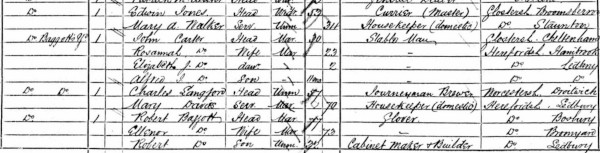 Do 1 Edwin Jones Head Currier (Master) Glostersh.
Mary A Walker Serv Unm 34 Housekeeper (domestic) Do Staunton
Do Baggotts Yd 1 John Carter Head Mar 30 Stable Man Glostersh. Cheltenham
Rosannah Do Wife Mar 23 Herefordsh.
Elizabeth J. Do daur 2 Do Ledbury
Alfred J Do Son 11mo Do Do
Do Do 1 Charles Langford Head Unm Journeyman Brewer Worcestersh. Droitwich
Mary Serv 70 Housekeeper (domestic) Herefordsh. Ledbury
1 Robert Head Mar Glover Do Bosbury
Ellenor Do Wife Mar 73 Do Bromyard
Robert Do Son Unm Cabinet Maker & Builder Do Ledbury